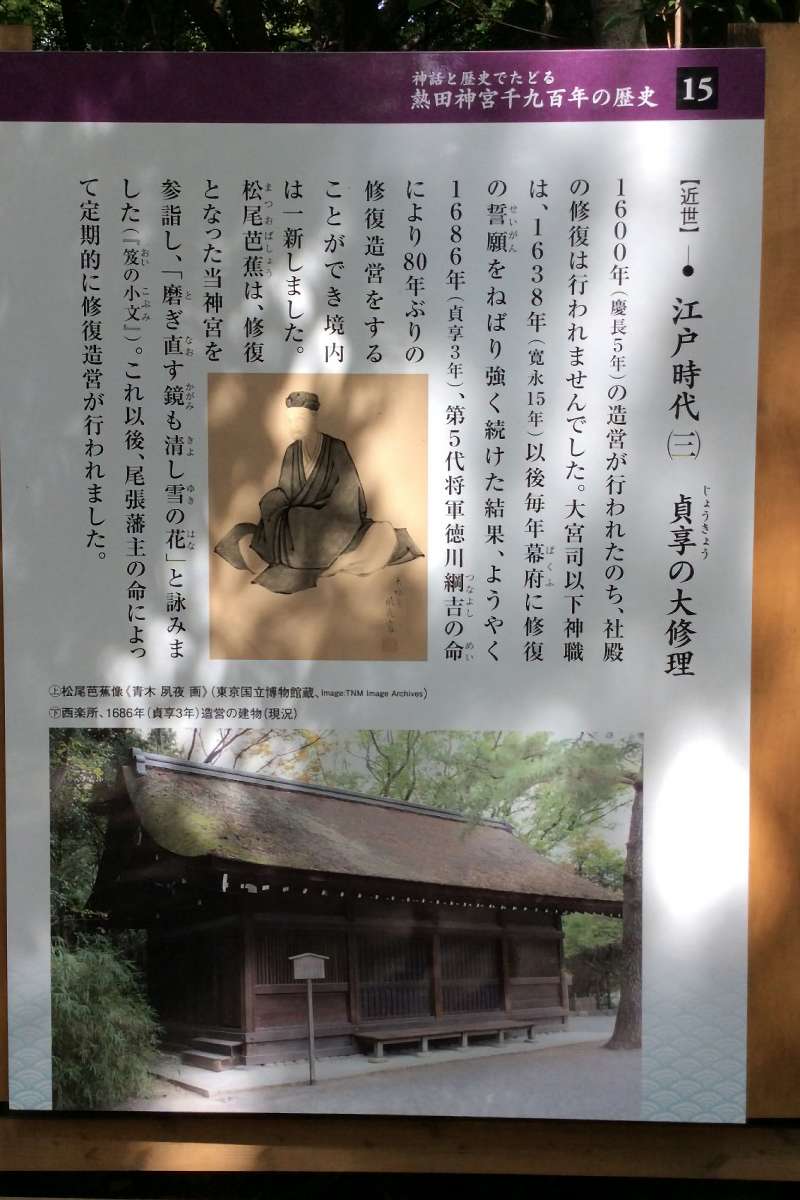 神話と歴史でたどる
熱田神宮千九百年の歴史
15
【近世】―●江戸時代㈢ 貞享の大修理
じょうきょう
1600年(慶長5年)の造営が行われたのち、社殿
の修復は行われませんでした。大宮司以下神職
は、1638年(寛永15年)以後毎年幕府に修復
ばくふ
の誓願をねばり強く続けた結果、ようやく
せいがん
1686年(貞享3年)、第5代将軍徳川綱吉の命
つなよし めい
により80年ぶりの
修復造営をする
ことができ境内
は一新しました。
松尾芭蕉は、修復
まつおばしょう
となった当神宮を
参詣し、「磨ぎ直す鏡も清し雪の花」と詠みま
と なお かがみ きよ ゆき はな
した(『笈の小文』)。これ以後、尾張藩主の命によっ
おい こぶみ
て定期的に修復造営が行われました。
㊤松尾芭蕉像《青木 夙夜 画》(東京国立博物館蔵、Image:TNM Image Archives)
㊦西楽所、1686年(貞享3年)造営の建物(現況)